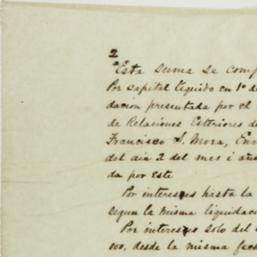 2
"Esta suma se comp
Por capital líquido en 1º de
dacion presentada por el
de Relaciones Esteriores de
Francisco S. Mora, Env
del dia 2 del mes i
da por este
Por intereses hasta la
segun la misma liquidac
Por intereses solo del c
desde la misma fec